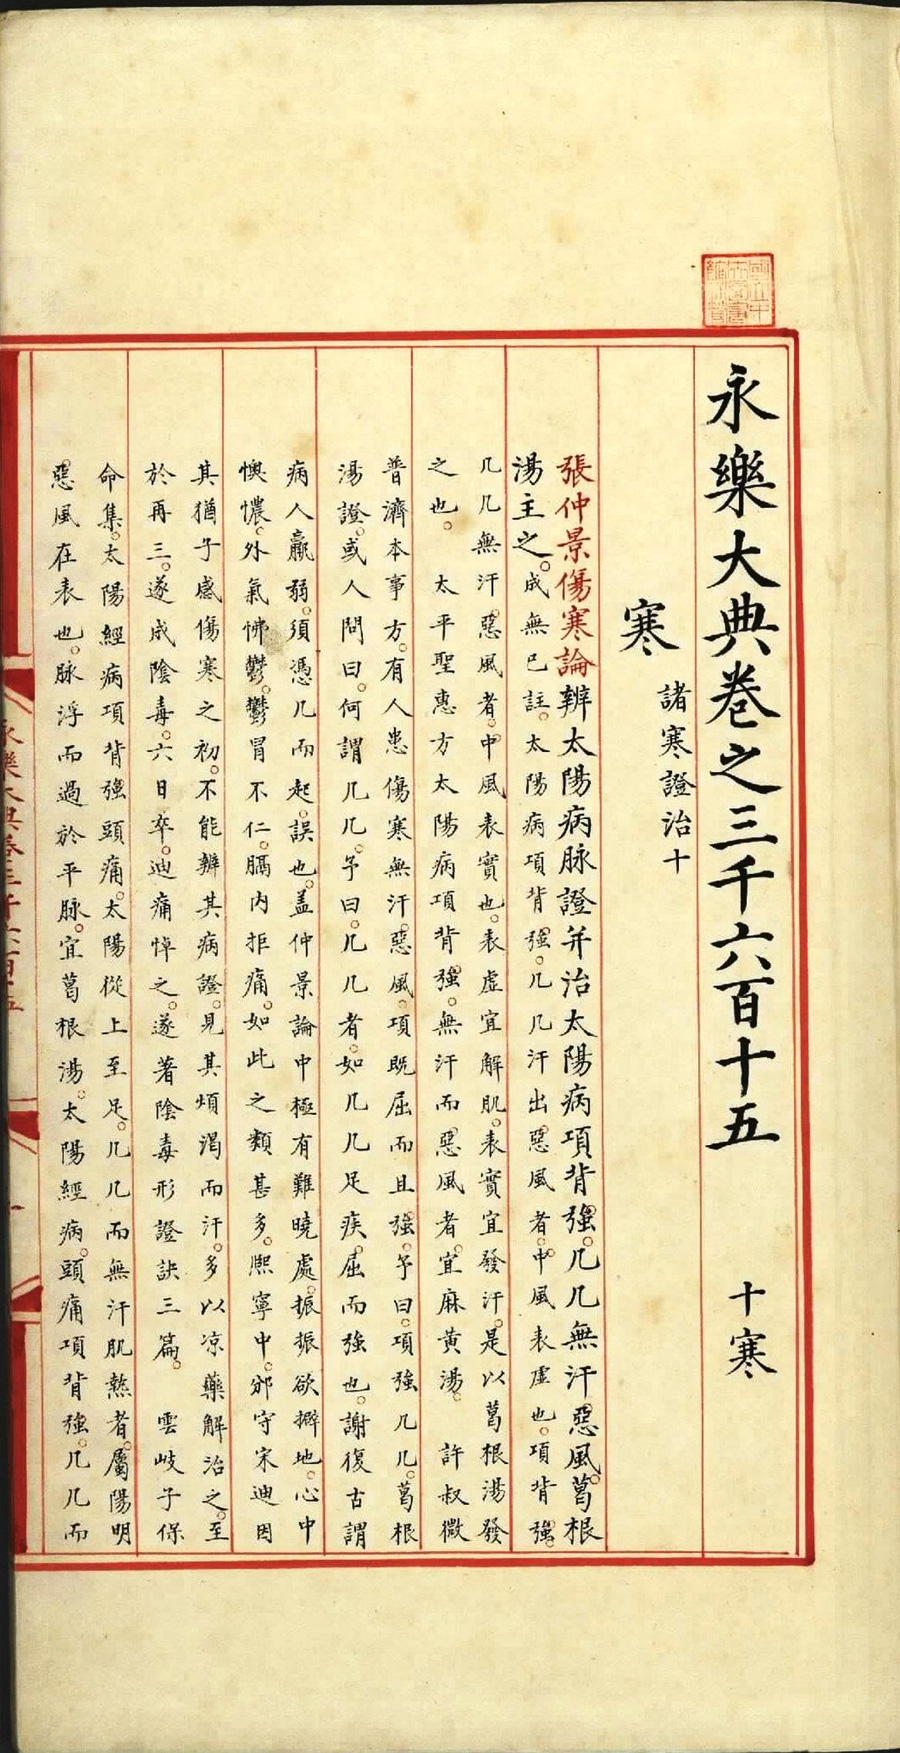 永樂大典卷之三千六百十五　十寒
寒　諸寒證治十
張仲景傷寒論辨太陽病脉證并治太陽病項背強几几無汗惡風葛根
湯主之成無已註太陽病項背強几几汗出惡風者中風表虛也項背強
几几無汗惡風者中風表實也表虛宜解肌表實宜發汗是以葛根湯發
之也　太平聖惠方太陽病項背強無汗而惡風者宜麻黄湯　許叔微
普濟本事方有人患傷寒無汗惡風項既屈而且強予曰項強几几葛根
湯證或人問曰何謂几几予曰几几者如几几足疾屈而強也謝復古謂
病人羸弱須憑几而起誤也盖仲景論中極有難曉處振振欲擗地心中
懊憹外氣怫鬱鬱冒不仁膈内拒痛如此之類甚多熈寧中邠守宋迪因
其猶子感傷寒之初不能辨其病證見其煩渴而汗多以凉藥解治之至
於再三遂成陰毒六日卒迪痛悼之遂著陰毒形證訣三篇　雲岐子保
命集太陽經病項背強頭痛太陽從上至足几几而無汗肌熱者屬陽明
惡風在表也脉浮而過於平脉宜葛根湯太陽經病頭痛項背強几几而
永樂大典卷三千六百十五